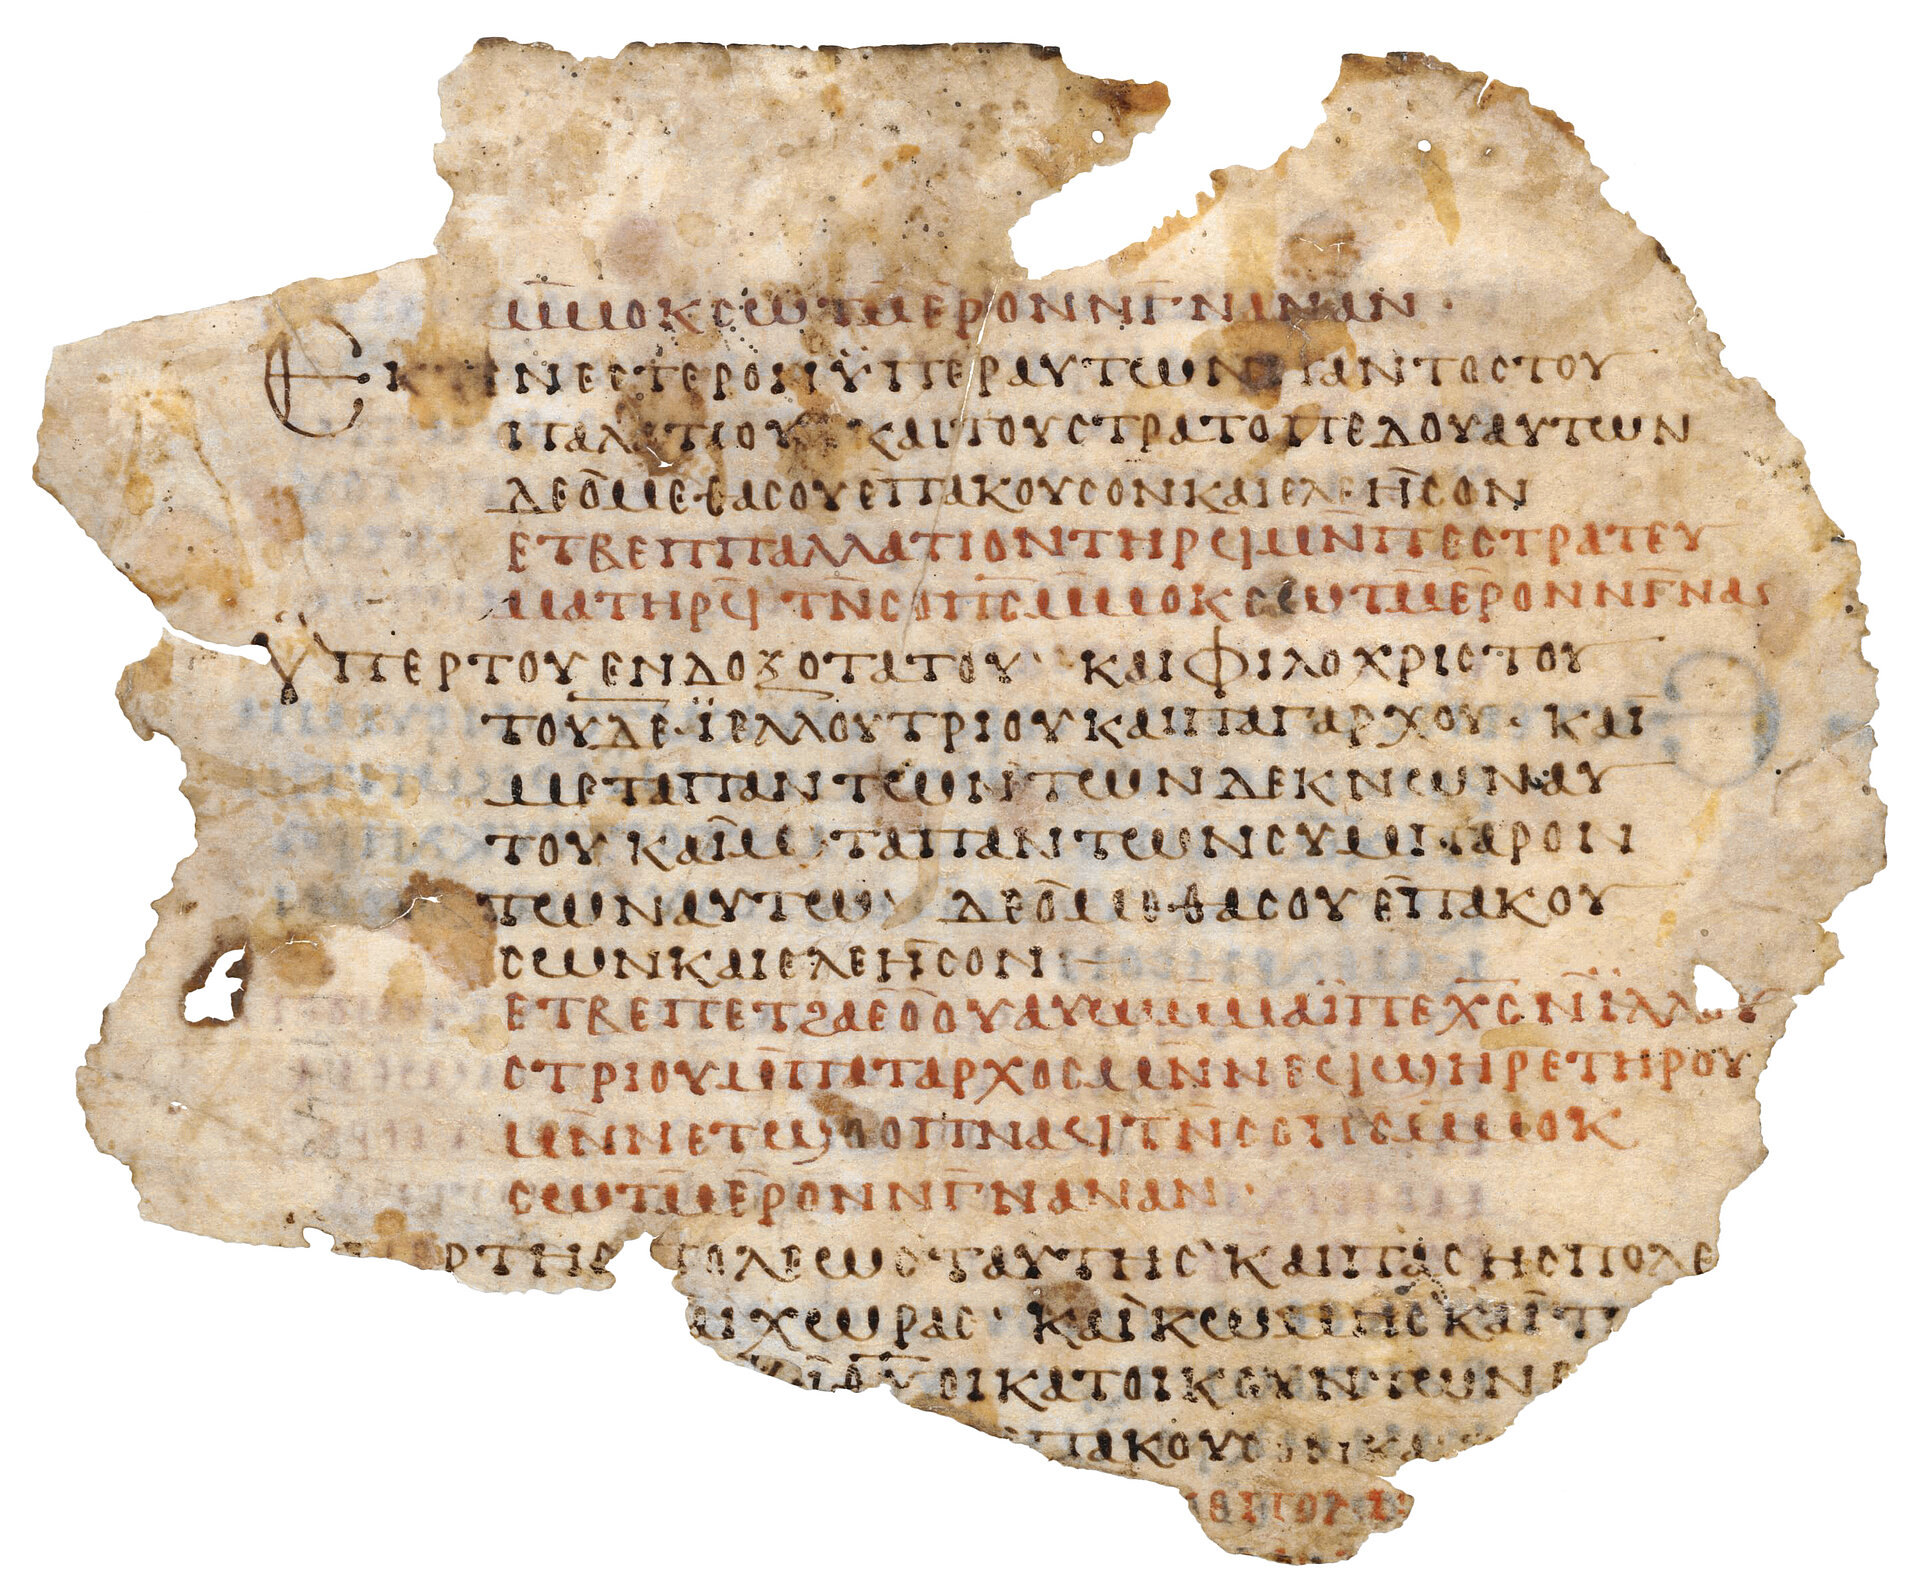 ⲙ̄ⲙⲟⲕ ⲥⲱⲧⲙ̄ ⲉⲣⲟⲛ ⲛⲛⲅ̄ⲛⲁ ⲛⲁⲛ ·
ⲉⲕⲧⲉⲛⲉⲥⲧⲉⲣⲟⲛ ⲩ̈ⲡⲉⲣ ⲁⲩⲧⲱⲛ ⲡⲁⲛⲧⲟⲥ ⲧⲟⲩ
ⲡⲁⲗⲁⲧⲓⲟⲩ ⲕⲁⲓ ⲧⲟⲩ ⲥⲧⲣⲁⲧⲟⲡⲉⲇⲟⲩ ⲁⲩⲧⲱⲛ
ⲇⲉⲟⲙⲉⲑⲁ ⲥⲟⲩ ⲉⲡⲁⲕⲟⲩⲥⲟⲛ ⲕⲁⲓ ⲉⲗⲉⲏⲥⲟⲛ
ⲉⲧⲃⲉ ⲡⲡⲁⲗⲗⲁⲧⲓⲟⲛ ⲧⲏⲣϥ ⲙⲛ̄ ⲡⲉⲥⲧⲣⲁⲧⲉⲩ
ⲙⲁ ⲧⲏⲣϥ̄ ⲧⲛ̄ⲥⲟⲡⲥ̄ ⲙ̄ⲙⲟⲕ ⲥⲱⲧⲙ̄ ⲉⲣⲟⲛ ⲛⲛⲅ̄ⲛⲁ
ⲩ̈ⲡⲉⲣ ⲧⲟⲩ ⲉⲛⲇⲟⲝⲟⲧⲁⲧⲟⲩ · ⲕⲁⲓ ⲫⲓⲗⲟⲭⲣⲓⲥⲧⲟⲩ
ⲧⲟⲩⲇⲉ · ⲓ̈ⲉⲗⲗⲟⲩⲧⲣⲓⲟⲩ ⲕⲁⲓ ⲡⲁⲅⲁⲣⲭⲟⲩ · ⲕⲁⲓ
ⲙⲉⲧⲁ ⲡⲁⲛⲧⲱⲛ ⲧⲱⲛ ⲇⲉⲕⲛⲱⲛ ⲁⲩ
ⲧⲟⲩ ⲕⲁⲓ ⲙⲉⲧⲁ ⲡⲁⲛⲧⲱⲛ ⲥⲩⲙⲡⲁⲣⲟⲛ
ⲧⲱⲛ ⲁⲩⲧⲱ ⲇⲉⲟⲙⲉⲑⲁ ⲥⲟⲩ ⲉⲡⲁⲕⲟⲩ
ⲥⲱⲛ ⲕⲁⲓ ⲉⲗⲉⲏⲥⲟⲛ
ⲉⲧⲃⲉ ⲡⲉⲧϩⲁⲉⲟⲟⲩ ⲁⲩⲱ ⲙ̄ⲙⲁⲓ̈ⲡⲉⲭ̄ⲥ̄ ⲛ̄ⲓ̈ⲗⲗⲟⲩ
ⲥⲧⲣⲓⲟⲩ ⲙ̄ⲡⲁⲅⲁⲣⲭⲟⲥ ⲙⲛ̄ ⲛⲉϥϣⲏⲣⲉ ⲧⲏⲣⲟⲩ
ⲙⲛ̄ ⲛⲉⲧϣⲟⲟⲡ ⲛⲁϥ ⲧⲛ̄ⲥⲟⲡⲥ ⲙ̄ⲙⲟⲕ
ⲥⲱⲧⲙ̄ ⲉⲣⲟⲛ ⲛⲛⲅ̄ⲛⲁ ⲛⲁⲛ ·
ⲣ ⲧⲏⲥ ⲡⲟⲗⲉⲱⲥ ⲧⲁⲩⲧⲏⲥ ⲕⲁⲓ ⲡⲁⲥⲏⲥ ⲡⲟⲗⲉ
ⲁⲓ ⲭⲱⲣⲁⲥ · ⲕⲁⲓ ⲕⲱⲙⲏⲥ ⲕⲁⲓ ⲧ
ⲟⲓⲕⲁⲧⲟⲓⲕⲟⲩⲛⲧⲱⲛ
ⲡⲁⲕⲟⲩⲥⲟⲛ ⲕⲁ